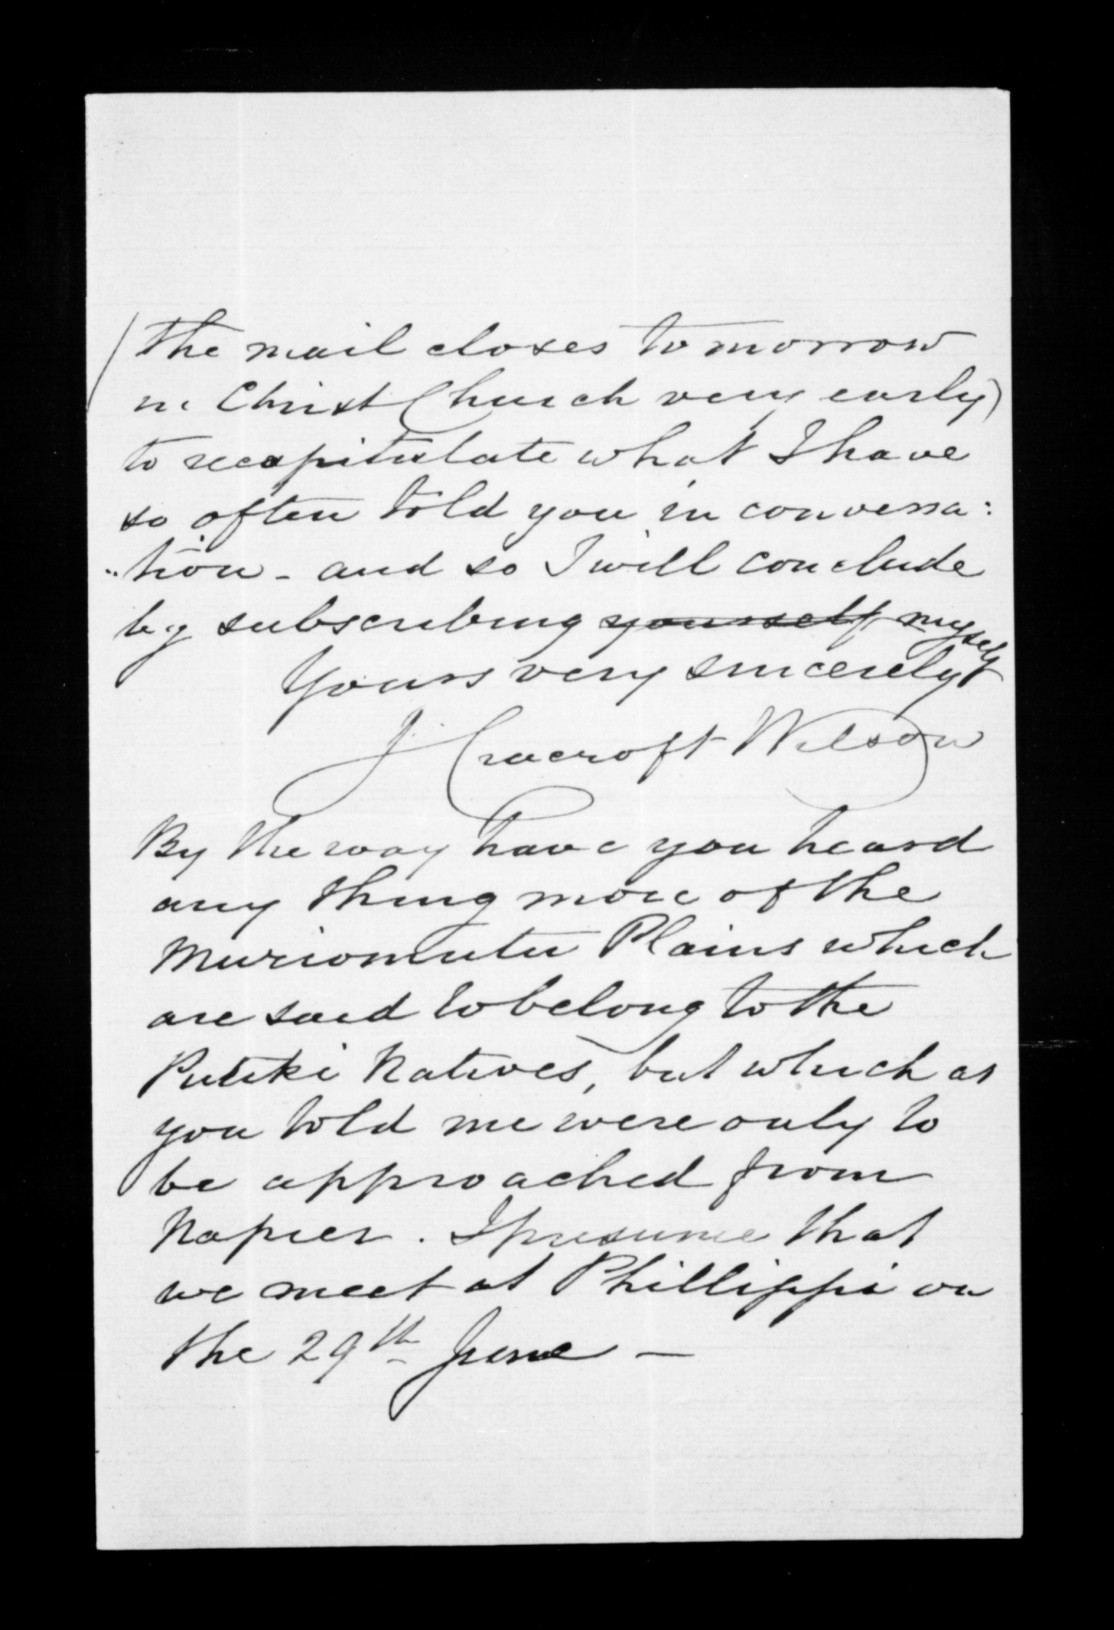 (the mail closes tomorrow
in Christ Church very early)
to recapitulate what I have
so often told you in conversa:
:tion - and so I will conclude
by subscribing ~~yourself~~ myself
Yours very sincerely
J. Cracroft Wilson
By the way have you heard
any thing more of the
Muriomutu Plains which
are said to belong to the
Putiki Natives, but which as
you told me were only to
be approached from
Napier. I presume that
we meet at Phillippi on
the 29th June —